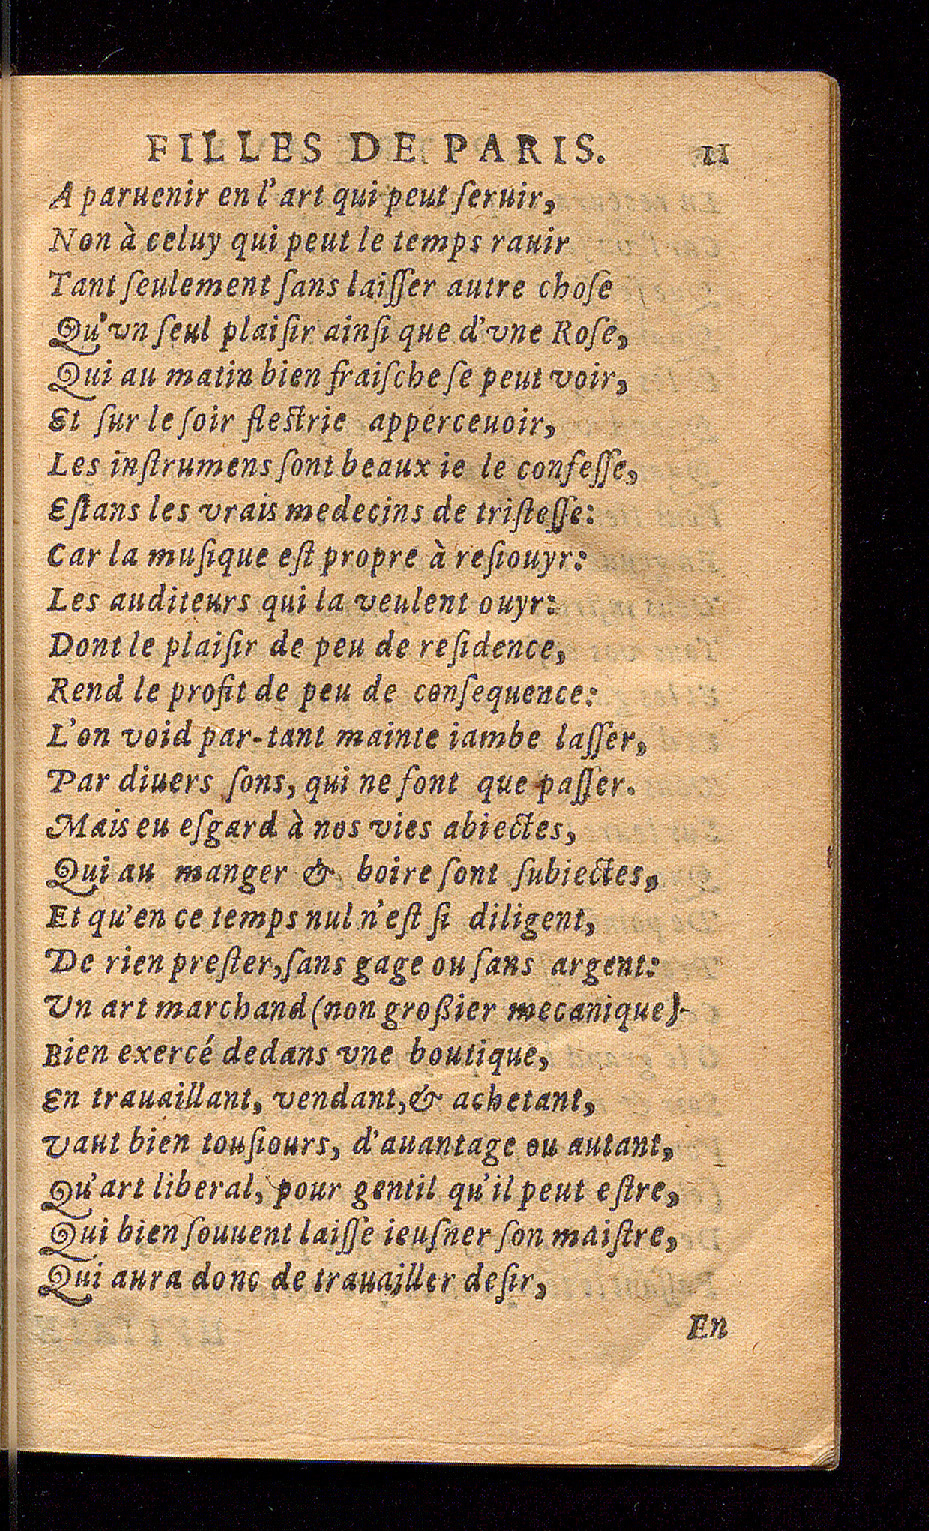 FILLES DE PARIS. 11
A paruenir en l'art qui peut ſeruir,
Non à celuy qui peut le temps rauir
Tant ſeulement ſans laiſſer autre choſe
Qu'vn ſeul plaiſir ainſi que d'vne Roſe,
Qui au matin bien fraiſche ſe peut voir,
Et ſur le ſoir fleſtrie apperceuoir,
Les inſtrumens ſont beaux ie le confeſſe,
Eſtans les vrais medecins de triſteſſe:
Car la muſique eſt propre à reſiouyr:
Les auditeurs qui la veulent ouyr:
Dont le plaiſir de peu de reſidence,
Rend le profit de peu de conſequence:
L'on void par-tant mainte iambe laſſer,
Par diuers ſons, qui ne font que paſſer.
Mais eu eſgard à nos vies abiectes,
Qui au manger & boire ſont ſubiectes,
Et qu'en ce temps nul n'eſt ſi diligent,
De rien preſter, ſans gage ou ſans argent:
Vn art marchand (non großier mecanique)
Bien exercé dedans vne boutique,
En trauaillant, vendant, & achetant,
Vaut bien touſiours, d'auantage ou autant,
Qu'art liberal, pour gentil qu'il peut eſtre,
Qui bien ſouuent laiſſe ieuſner ſon maiſtre,
Qui aura donc de trauailler deſir,
En